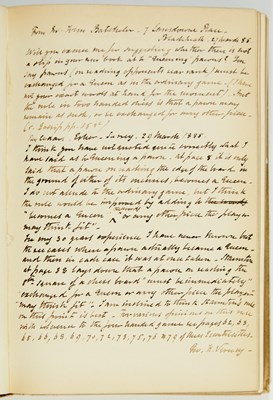 From Mr Batchelor. 7 Lansdowne Place.
Blackheath 27 March 85
Will you excuse me for suggesting whether there is not
a slip in your new book as to "Queening pawns"? You
say pawns, on reaching opponents rear rank, must be
exchanged for a Queen as in the ordinary game. (I have
not your exact words at hand for the moment), but
the rule in two handed chess is that a pawn may
remain as such, or be exchanged for any other piece.
Surrey. 29 March 1885.
I think you have not quoted quite correctly what I
have said as to Queening a pawn. At page 8 it is only
said that a pawn on reaching the edge of the board in
the ground of either of its enemies, becomes a Queen.
I do not allude to the ordinary game, but I think
the rule would be improved by adding to
"becomes a Queen" "or any other piece the player
may think fit".
In my 30 years experience I have never known but
two cases where a pawn actually became a Queen
and then in each case it was at once taken. Staunton
at page 33 lays down that a pawn on reaching the
8th square of the chess board "must be immediately
exchanged for a Queen or any other piece the player
may think fit". I am inclined to think Staunton's rule
on this point is best. For various opinions on this rule
with reference to the four handed game see pages 62, 63,
65, 66, 68, 69, 70, 72, 73, 75, 76 & 79 of Chess Eccentricities.
Geo. H. Verney.